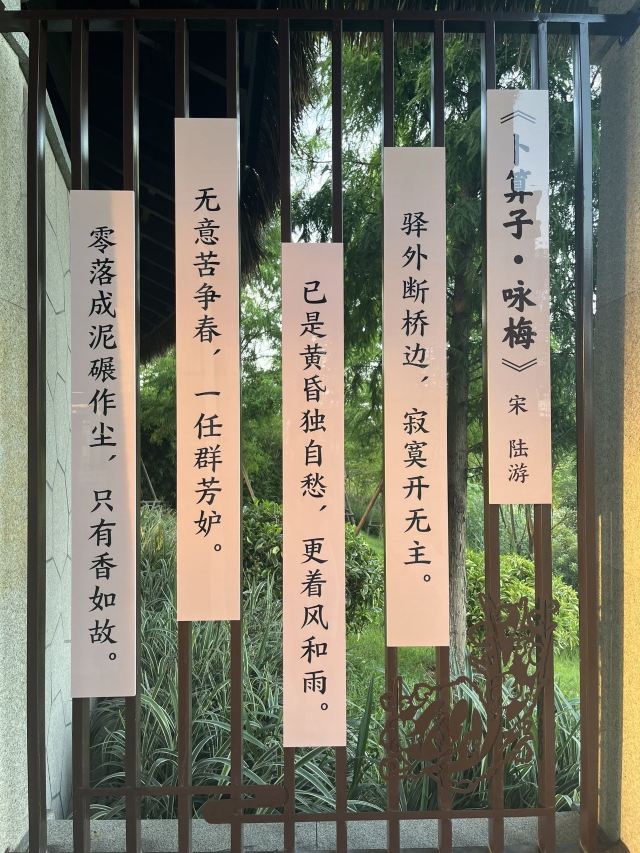 《卜算子·咏梅》 宋 陆游
驿外断桥边，寂寞开无主。
已是黄昏独自愁，更着风和雨。
无意苦争春，一任群芳妒。
零落成泥碾作尘，只有香如故。